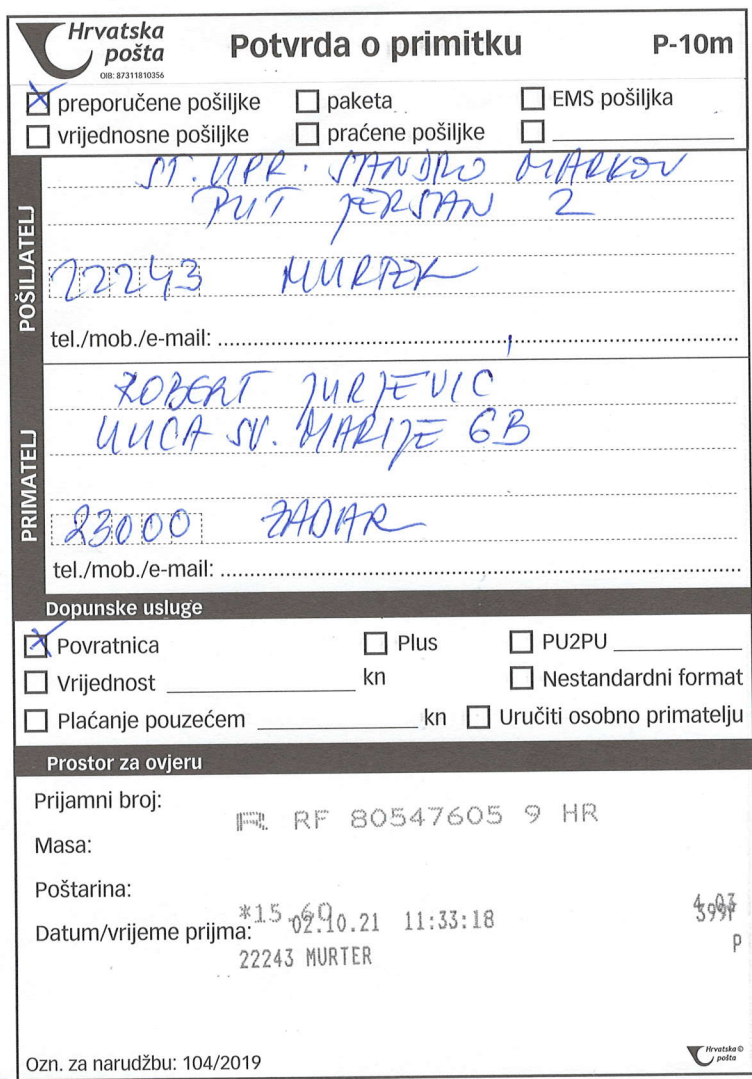 Hrvatska pošta
OIB: 87311810356
Potvrda o primitku
P-10m
preporučene pošiljke paketa EMS pošiljka
vrijednosne pošiljke praćene pošiljke
POŠILJATELJ
ST. UPR. SANDRO MARKOV
PUT JERSAN 2
22243 MURTER
tel./mob./e-mail:
PRIMATELJ
ROBERT JURJEVIC
ULICA SV. MARIJE 6B
23000 ZADAR
tel./mob./e-mail:
Dopunske usluge
Povratnica Plus PU2PU
Vrijednost kn Nestandardni format
Plaćanje pouzećem kn Uručiti osobno primatelju
Prostor za ovjeru
Prijamni broj:
R RF 80547605 9 HR
Masa:
Poštarina:
*15,60
Datum/vrijeme prijma: 02.10.21 11:33:18
P
22243 MURTER
Ozn. za narudžbu: 104/2019
Hrvatska pošta